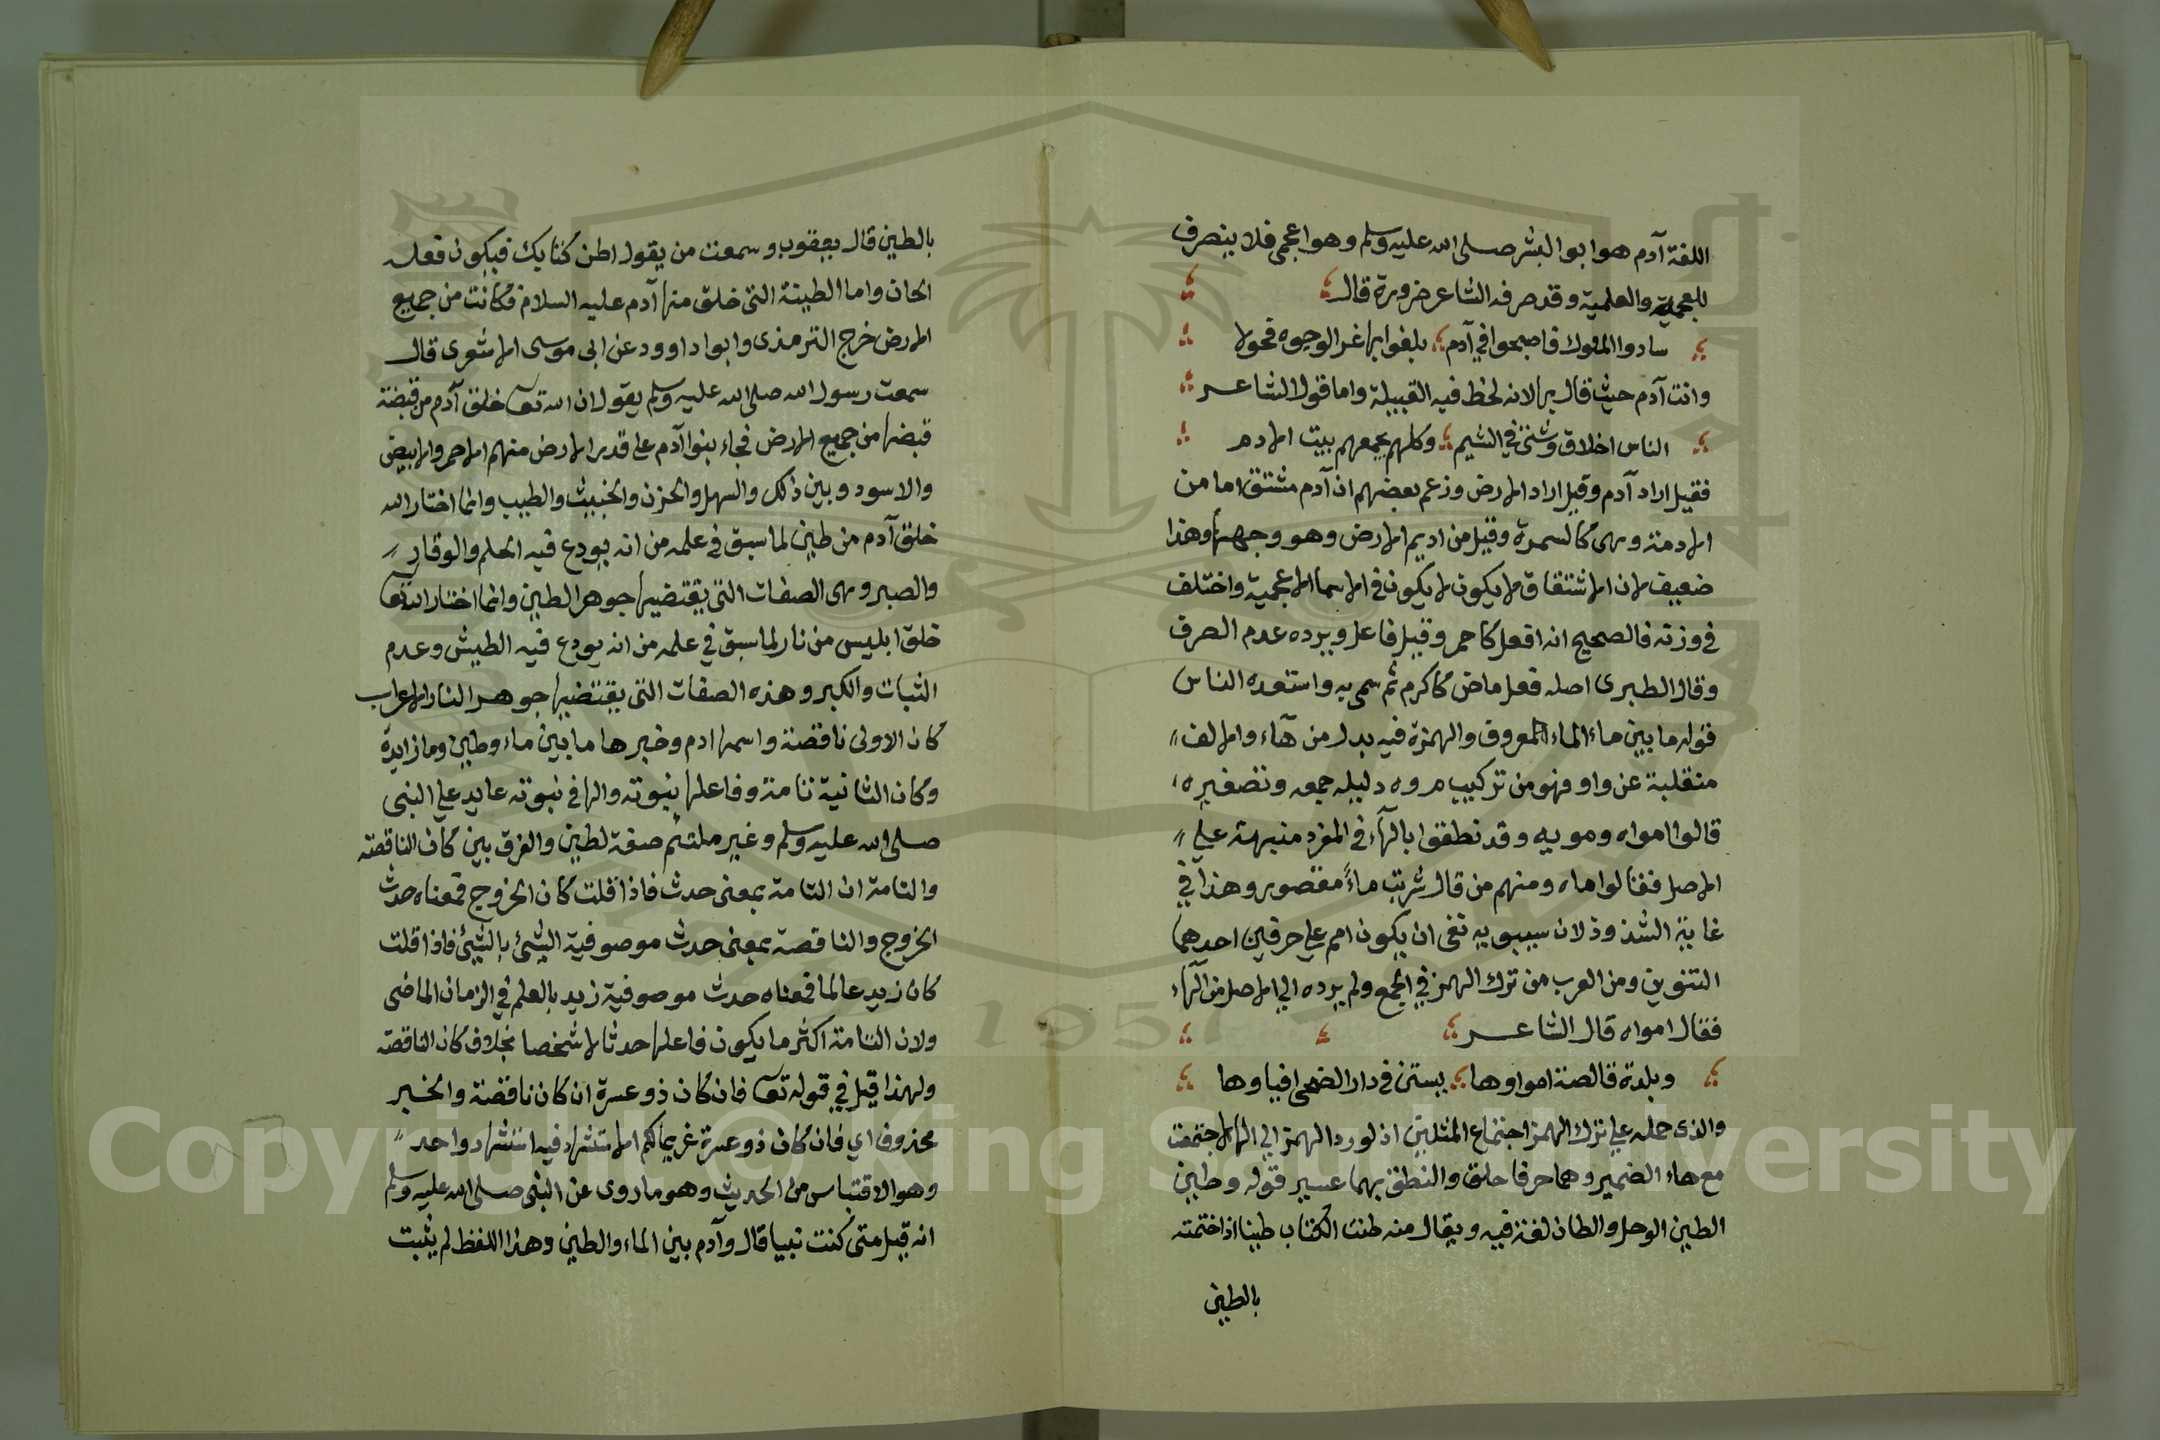 اللغة آدم هو ابو البشر صلى الله عليه وسلم وهو اعجمى فلا ينصرف
للعجمية والعلمية وقد صرفه الشاعر ضرورة قال
سادوا الملوك فاصبحوا في آدم بلغوا بها غر الوجوه فحولا
وانت آدم حيث قال بها لانه لحظ فيه القبيلة واما قول الشاعر
الناس اخلاق وشتى في الشيم وكلهم يجمعهم بيت الادم
فقيل اراد آدم وقيل اراد الارض وزعم بعضهم ان آدم مشتق اما من
الادمة وهى كالسمرة وقيل من اديم الارض وهو وجهها وهذا
ضعيف لان الاشتقاق لا يكون لا يكون في الاسما الاعجمية واختلف
في وزنه فالصحيح انه افعل كاحمر وقيل فاعل ويرده عدم الصرف
وقال الطبرى اصله فعل ماض كاكرم ثم سمى به واستعده الناس
قوله ما بين ماء الماء المعروف والهمزة فيه بدل من هآء والالف
منقلبة عن واو فهو من تركيب م وه دليله جمعه وتصغيره
قالوا امواه ومويه وقد نطقوا بالهآء في المفرد منبهة على
الاصل فقالوا ماه ومنهم من قال شربت ماً مقصور وهذا في
غاية الشذوذ لان سيبويه نفى ان يكون اسم على حرفين احدهما
التنوين ومن العرب من ترك الهمز في الجمع ولم يرده الى الاصل من الهآء
فقال امواه قال الشاعر
وبلدة قالصة امواوها يستن في داد الضحى افياوها
والذى حمله على ترك الهمز اجتماع المثلين اذ لو رد الهمز الى الها لاجتمعت
مع هاء الضمير وهما حرفا حلق والنطق بهما عسير قوله وطين
الطين الوحل والطان لغة فيه ويقال منه طنت الكتاب طينا اذا ختمته
بالطين
بالطين قال يعقوب وسمعت من يقول اطن كتابك فيكون فعله
الحان واما الطينة التى خلق منها آدم عليه السلام فكانت من جميع
الارض خرج الترمذى وابو داوود عن ابى موسى الاشعرى قال
سمعت رسول الله صلى الله عليه وسلم يقول ان الله تعا خلق آدم من قبضة
قبضها من جميع الارض فجاء بنوا آدم على قدر الارض منهم الاحمر والابيض
والاسود وبين ذلك والسهل والحزن والخبيث والطيب وانما اختار الله
خلق آدم من طين لما سبق في علمه من انه يودع فيه الحلم والوقار
والصبر وهى الصفات التى يقتضيها جوهر الطين وانما اختار الله تعا
خلق ابليس من نار لما سبق في علمه من انه يودع فيه الطيش وعدم
الثبات والكبر وهذه الصفات التى يقتضيها جوهر النار الاعراب
كان الاولى ناقصة واسمها ادم وخبرها ما بين ماء وطين وما زايدة
وكان الثانية تامة وفاعلها نبوته والها في نبوته عايد على النبى
صلى الله عليه وسلم وغير ملتئم صفة لطين والفرق بين كان الناقصة
والتامة ان التامة بمعنى حدث فاذا قلت كان الخروج فمعناه حدث
الخروج والناقصة بمعنى حدث موصوفية الشئ بالشئ فاذا قلت
كان زيد عالما فمعناه حدث موصوفية زيد بالعلم في الزمان الماضى
ولان التامة اكثر ما يكون فاعلها حدثا لا شخصا بخلاف كان الناقصة
ولهذا قيل في قوله تعا فان كان ذو عسرة ان كان ناقصة والخبر
محذوف اي فان كان ذو عسرة غريما لكم الاستشهاد فيه استشهاد واحد
وهو الاقتباس من الحديث وهو ما روى عن النبى صلى الله عليه وسلم
انه قيل متى كنت نبيا قال وآدم بين الماء والطين وهذا اللفظ لم يثبت
Copyright © King Saud University
1957